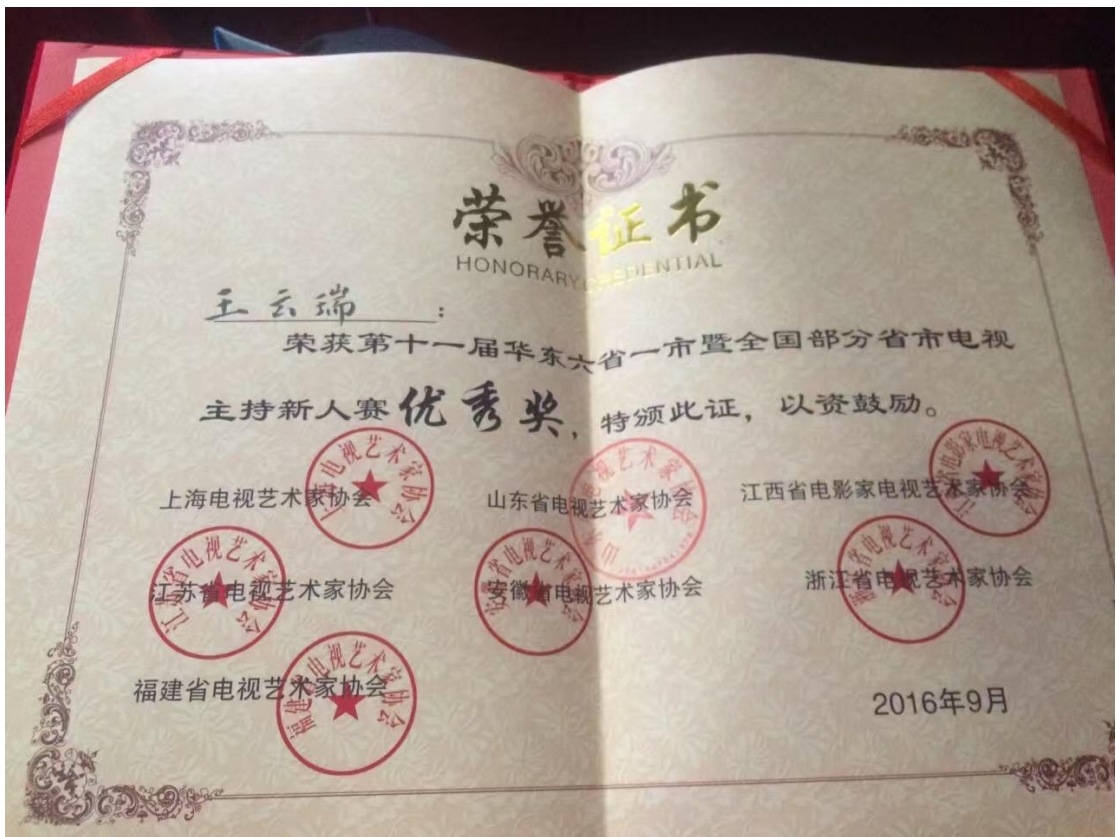 荣誉证书
HONORARY CREDENTIAL
王云瑞：
荣获第十一届华东六省一市暨全国部分省市电视
主持新人赛优秀奖，特颁此证，以资鼓励。
上海电视艺术家协会
山东省电视艺术家协会
江西省电影家电视艺术家协会
江苏省电视艺术家协会
安徽省电视艺术家协会
浙江省电视艺术家协会
福建省电视艺术家协会
2016年9月